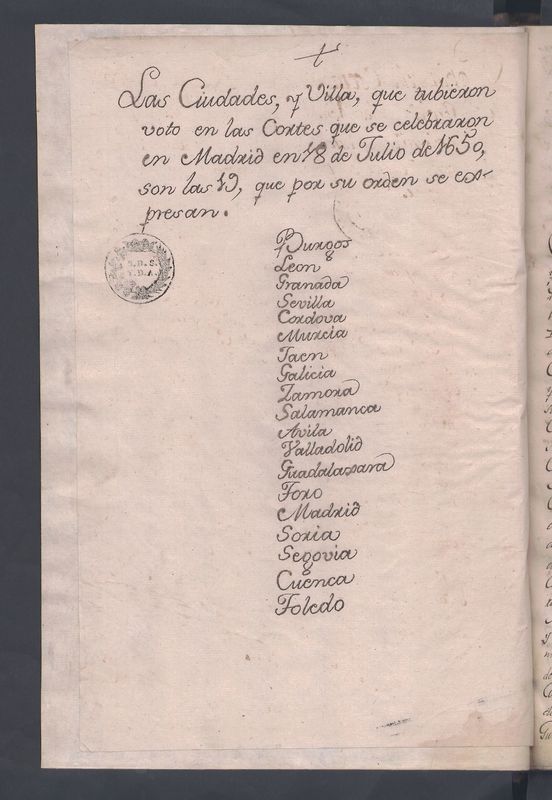 Las Ciudades, y Villa, que tubieron
voto en las Cortes que se celebraron
en Madrid en 18 de Julio de 1650,
son las 19, que por su orden se ex-
presan.
Burgos
Leon
Granada
Sevilla
S. D. S.
Y. D. A.
Cordova
Murcia
Jaen
Galicia
Zamora
Salamanca
Avila
Valladolid
Guadalaxara
Toro
Madrid
Soria
Segovia
Cuenca
Toledo